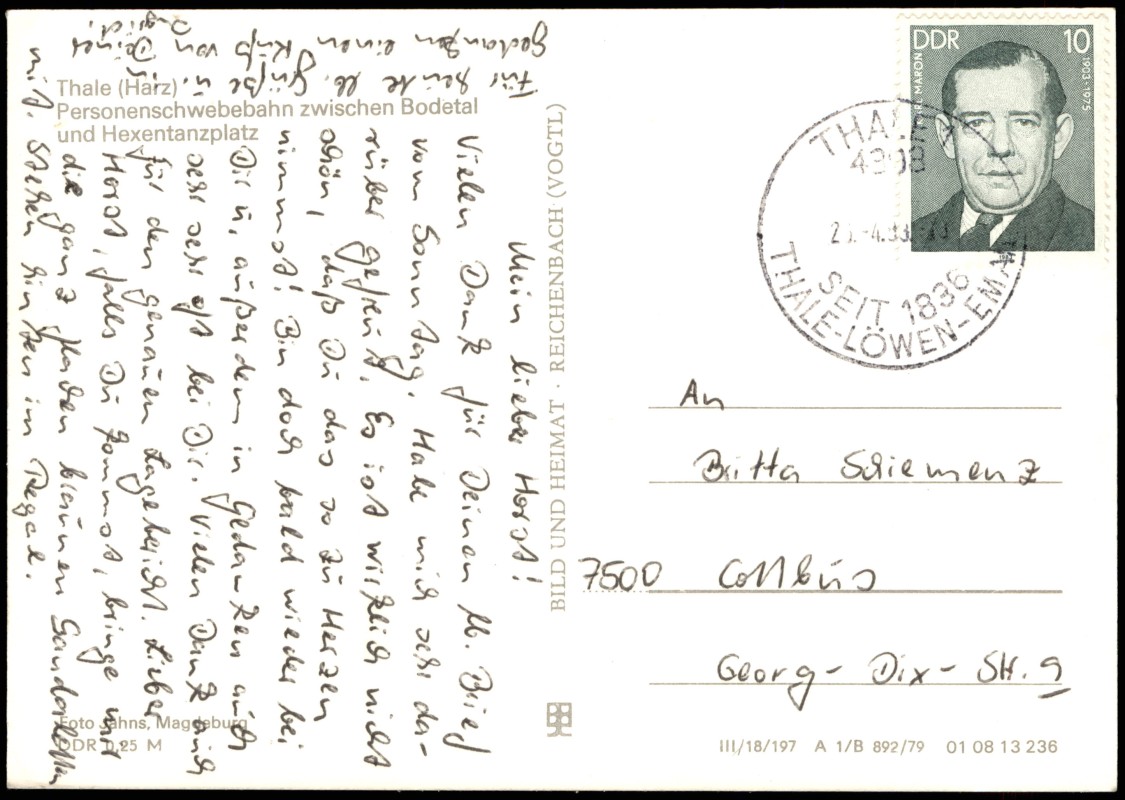 Thale (Harz)
Personenschwebebahn zwischen Bodetal
und Hexentanzplatz
Mein lieber Horst!
Vielen Dank für Deinen lb. Brief
vom Sonntag. Habe mich sehr da-
rüber gefreut. Es ist wirklich nicht
schön, daß Du das so zu Herzen
nimmst! Bin doch bald wieder bei
Dir u. außerdem in Gedanken auch
sehr sehr oft bei Dir. Vielen Dank auch
für den genauen Lagebericht. Lieber
Horst, falls Du kommst, bringe mir
die ganz flachen braunen Sandaletten
mit. Stehen hinten im Regal.
Für heute lb. Grüße u. in
Gedanken einen Kuß von Deiner
Foto Jahns, Magdeburg
DDR 0,25 M
BILD UND HEIMAT · REICHENBACH (VOGTL)
DDR 10
KARL MARON 1903-1975
THALE
SEIT 1836
THALE-LÖWEN-EMA
An
Britta Schiemenz
7500 Cottbus
Georg-Dix-Str. 9
III/18/197 A 1/B 892/79 01 08 13 236